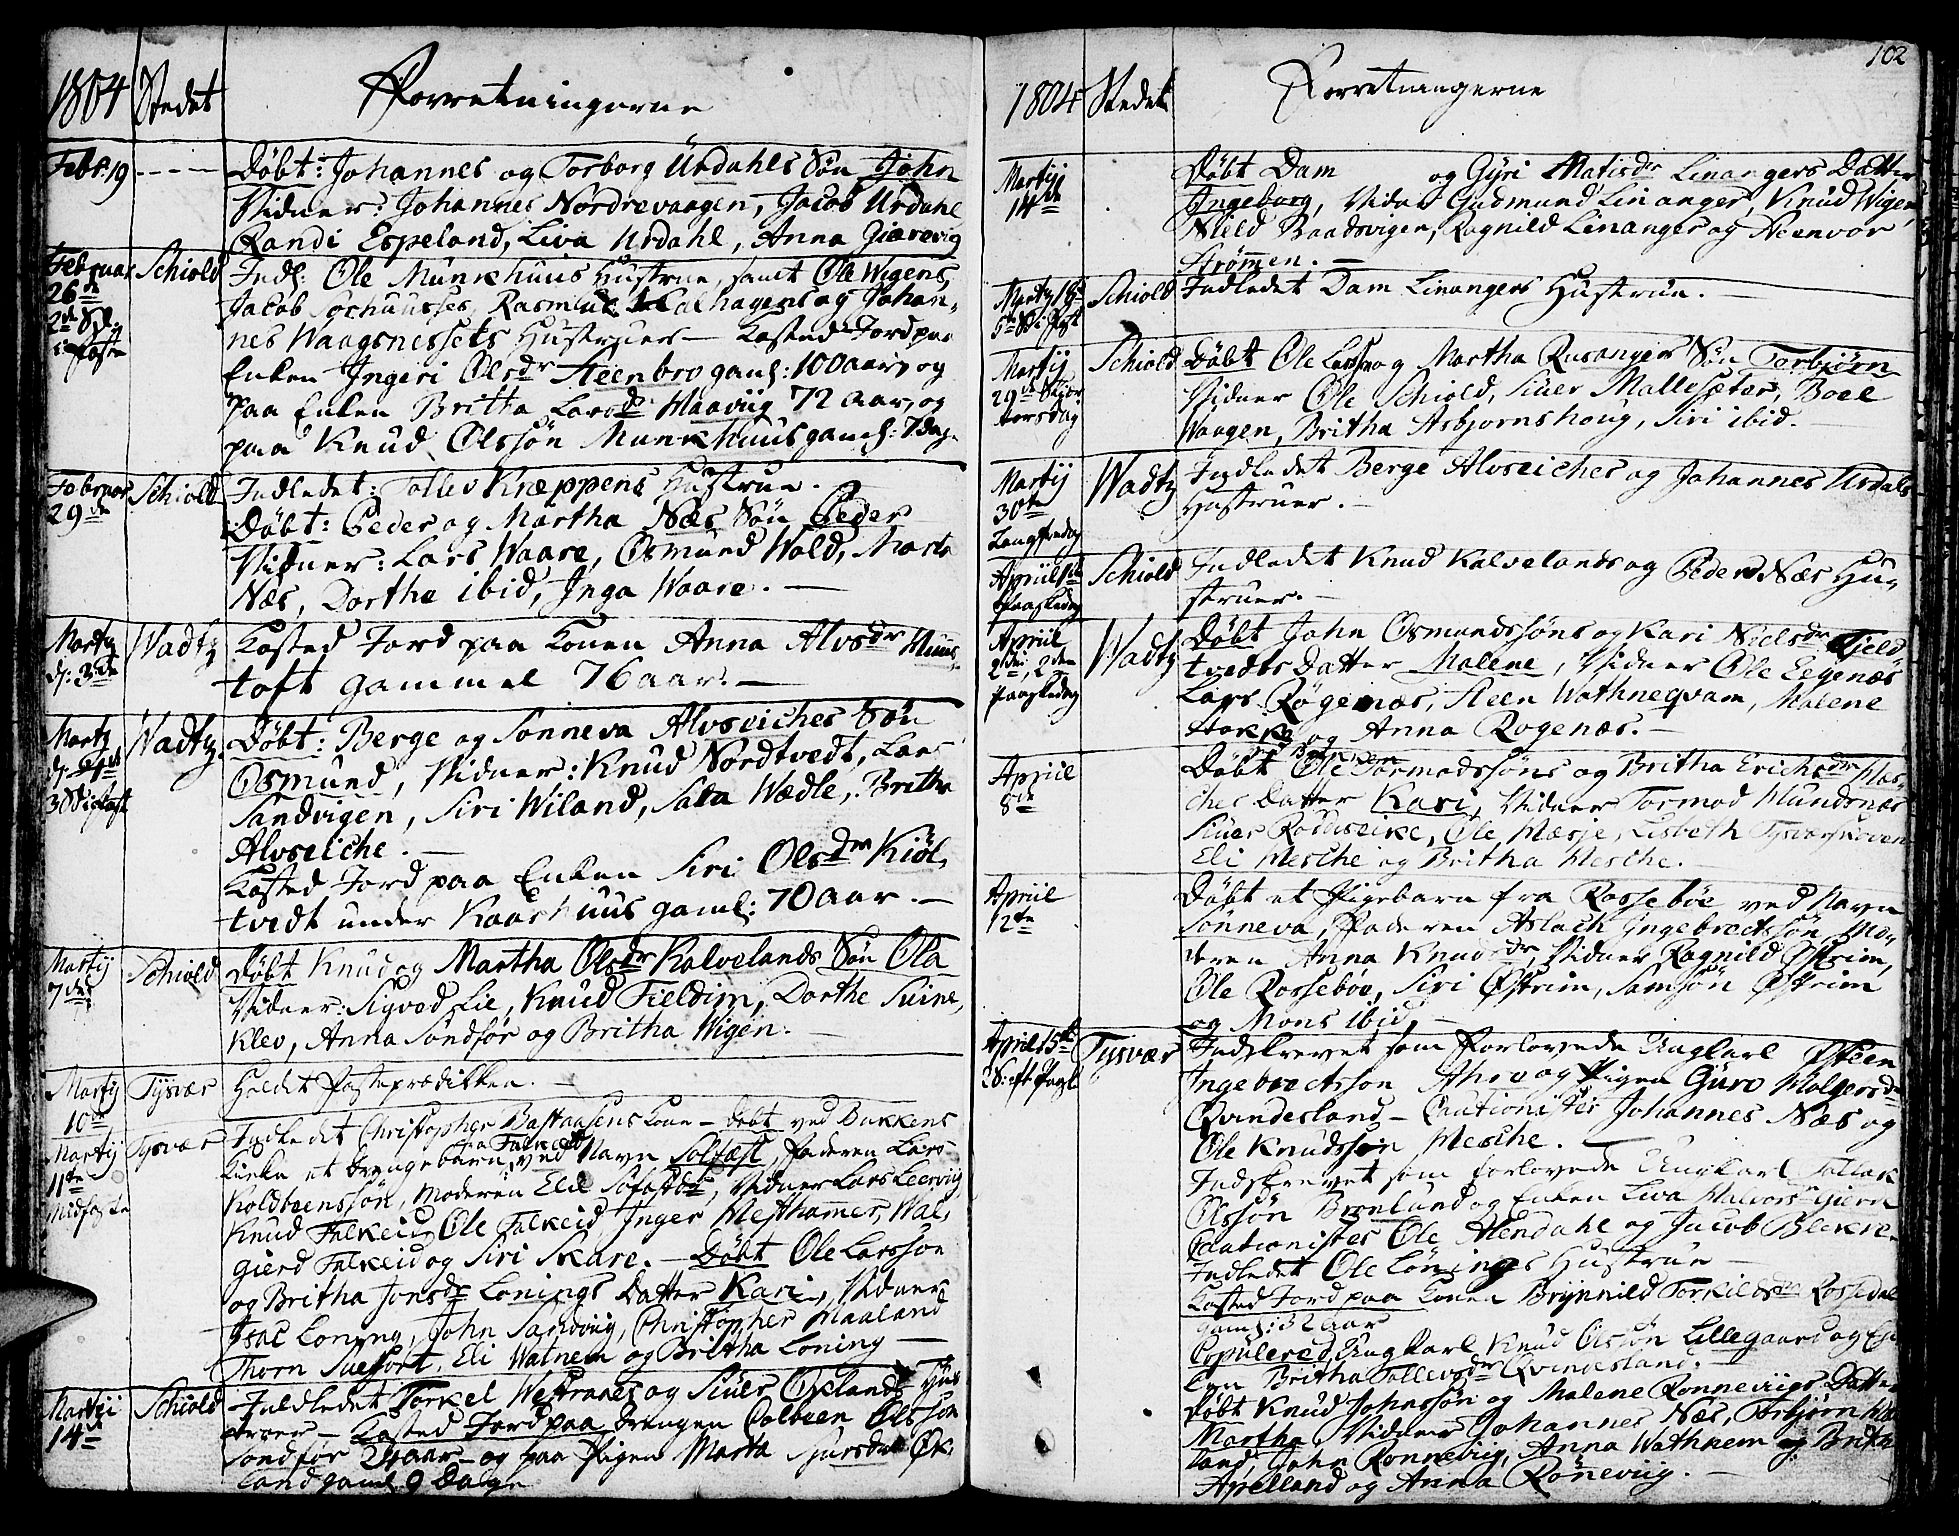 1804 Stedet Forretningerne
Febr. 19 - - - - Döbt: Johannes og Torborg Urdahls Sön John
Vidner: Johannes Nordrevaagen, Jacob Urdahl
Randi Espeland, Liva Urdahl, Anna Giærevig
Februar 26de 2d S. i Faste Schiold Indl: Ole Munkhuus Hustrue, samt Ole Wigens,
Jacob Sochuusses, Rasmus Kalhagens og Johan-
nes Waagsnessets Hustruer — Kasted Jord paa
Enken Ingeri Olsdr Steenbro gaml: 100 aar, og
paa Enken Britta Larsdr Waaviig 72 aar, og
paa Knud Olssön Munkhuus gaml: 7 dag.
Februar 29de Schiold Indledet: Tollev Kræppens Hustrue.
Döbt: Peder og Martha Næs Sön Peder
Vidner: Lars Waare, Osmund Wold, Marta
Næs, Dorthe ibid, Inga Waare. —
Martij d: 3de Wadtz Kasted Jord paa Konen Anna Alvsdr Huus-
toft gammel 76 aar. —
Martij d: 4de 3 S. i Fast Wadtz Döbt: Berge og Sonneva Alvseiches Sön
Osmund, Vidner: Knud Nordtvedt, Lars
Sandvigen, Siri Wiland, Sara Wædle, Britha
Alvseiche. —
Kasted Jord paa Enken Siri Olsdr Kiöl-
tvedt under Kaarhuus gaml: 70 aar. —
Martij 7de Schiold Döbt Knud og Martha Olsdr Kalvelands Sön Ola
Vidner: Sigvod Lie, Knud Fieldim, Dorthe Suine-
klev, Anna Söndför og Britha Wigen. —
Martij 10de Tysvær Holdet Fasteprædikken. —
Martij 11te Midfaste Tysvær Indledet Christopher Bastiansens Kone — Döbt ved Bukkens
Kirke et drengebarn fra Falkeid ved Navn Solfæst, Faderen Lars
Koldbeenssön, Moderen Eli Sofastdr, Vidner Lars Leervig
Knud Falkeid, Ole Falkeid, Inger Westhamer, Wal-
gierd Falkeid og Siri Skare. — Döbt Ole Larsson
og Britha Jonsdr Lonings Datter Kari, Vidner
Isac Loning, John Sandviig, Christopher Maaland
Thorn Suefort, Eli Watnem og Britha Loning —
Martij 14de Schiold Indledet Torkel Westranes og Siuer Oxlands Hus
truer — Kasted Jord paa Drengen Colbeen Olsson
Sondför 24 aar — og paa Pigen Marta Sjursdr Øk-
land gaml. 9 Dage
102
1804 Stedet Forretningerne
Martij 14de Döbt Dam og Gyri Matisdr Linangers Datter
Ingeborg, Vidner Gudmund Linanger, Knud Wigen
Nield Baadsvigen, Ragnild Linanger og Steenvor
Strömmen. —
Martij 18de 5te S. i Fast Schiold Indledet Dam Linangers Hustrue. —
Martij 29de Skjær torsdag Schiold Döbt Ole Larssen og Martha Rusanger Sön Torbjörn
Vidner Ole Schiold, Siuer Mallesæter, Boel
Waagen, Britha Asbjornshoug, Siri ibid. —
Martij 30te Langfredag Wadtz Indledet Berge Alvseiches og Johannes Urdals
Hustruer. —
Apriil 1ste Paaskedag Schiold Indledet Knud Kalvelands og Peder Næs Hu-
struer. —
Apriil 2den, 2den Paaskedag Wadtz Döbt John Osmundssöns og Kari Nielsdr Fjeld
tvedts Datter Malene, Vidner Ole Eegenæs
Lars Rögenæs, Steen Wathneqvam, Malene
Stokke og Anna Rogenæs. —
Apriil 8de Döbt Ole Tormodssöns og Britha Erichsdr Hes-
ches Datter Kari, Vidner Tormod Mundsnæs
Siuer Rodneeike, Ole Hæsje, Lisbeth Tysværskoven
Eli Hesche og Britha Hesche. —
Apriil 12te Döbt et Pigebarn fra Rosseböe ved Navn
Sönneva, Faderen Aslach Yngebrectssön, Mo-
deren Anna Knudsdr, Vidner Ragnild Østrim,
Ole Rossebö, Siri Østrim, Samsön Østrim
og Mons ibid. —
April 15de 2 S: eft Pask Tysvær Indskrevet som Forlovede Ungkarl Østen
Ingebrectsson Ahre og Pigen Guro Holgersdr
Qvindesland — Cautionister Johannes Næs og
Ole Knudsson Hesche. —
Indskrevet som forlovede Ungkarl Tollak
Olssön Bronlund og Enken Liva Halvorsdr Gjerre
Cautionister Ole Alendahl og Jacob Blekre.
Indledet Ole Lönings Hustrue —
Kasted Jord paa Konen Brynnild Torkildsdr Rossedal
gaml: 32 aar
Copulered Ungkarl Knud Olssön Lillegaard og En
ken Britha Tollevsdr Qvindesland. —
Döbt Knud Johnssön og Malene Ronneviigs Datter
Martha Vidner Johannes Næs, Asbjörn
land, John Ronneviig, Anna Wathnem og Britha
Apelland og Anna Röneviig. —